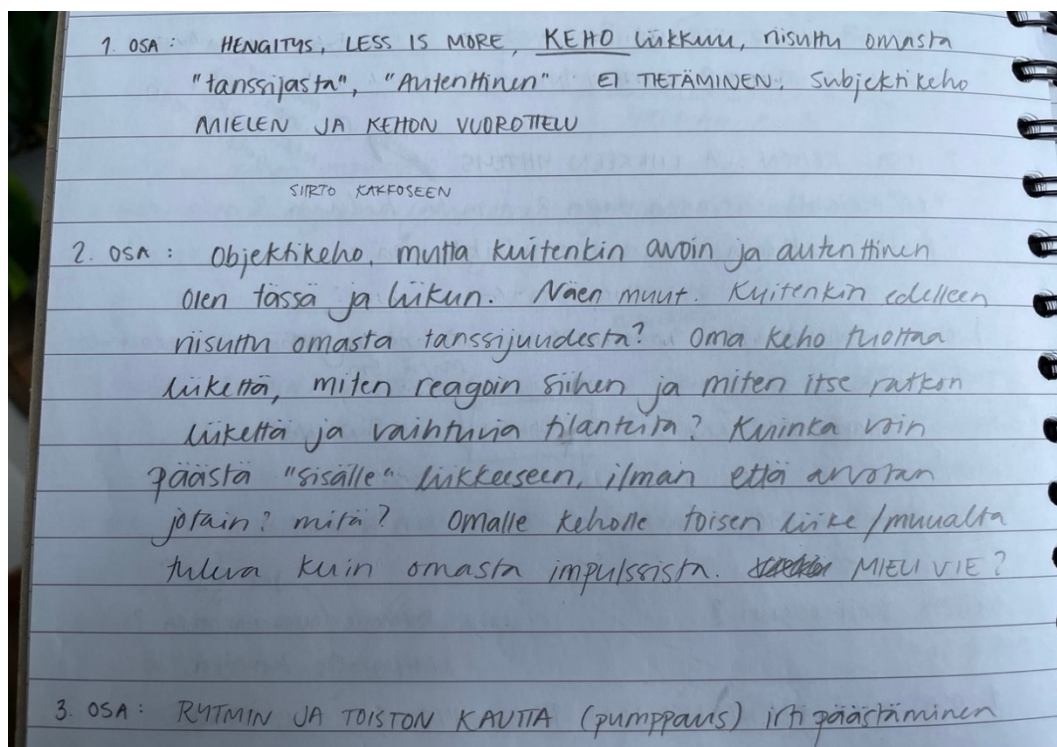 1. OSA : HENGITYS, LESS IS MORE, KEHO liikkuu, riisuttu omasta
"tanssijasta", "Autenttinen" EI TIETÄMINEN, Subjektikeho
MIELEN JA KEHON VUOROTTELU
SIIRTO KAKKOSEEN
2. OSA : Objektikeho, mutta kuitenkin avoin ja autenttinen
Olen tässä ja liikun. Näen muut. Kuitenkin edelleen
riisuttu omasta tanssijuudesta? Oma keho tuottaa
liikettä, miten reagoin siihen ja miten itse ratkon
liikettä ja vaihtuvia tilanteita? Kuinka voin
päästä "sisälle" liikkeeseen, ilman että arvotan
jotain? mitä? Omalle keholle toisen liike/muualta
tuleva kuin omasta impulssista. MIELI VIE?
3. OSA : RYTMIN JA TOISTON KAUTTA (pumppaus) irti päästäminen